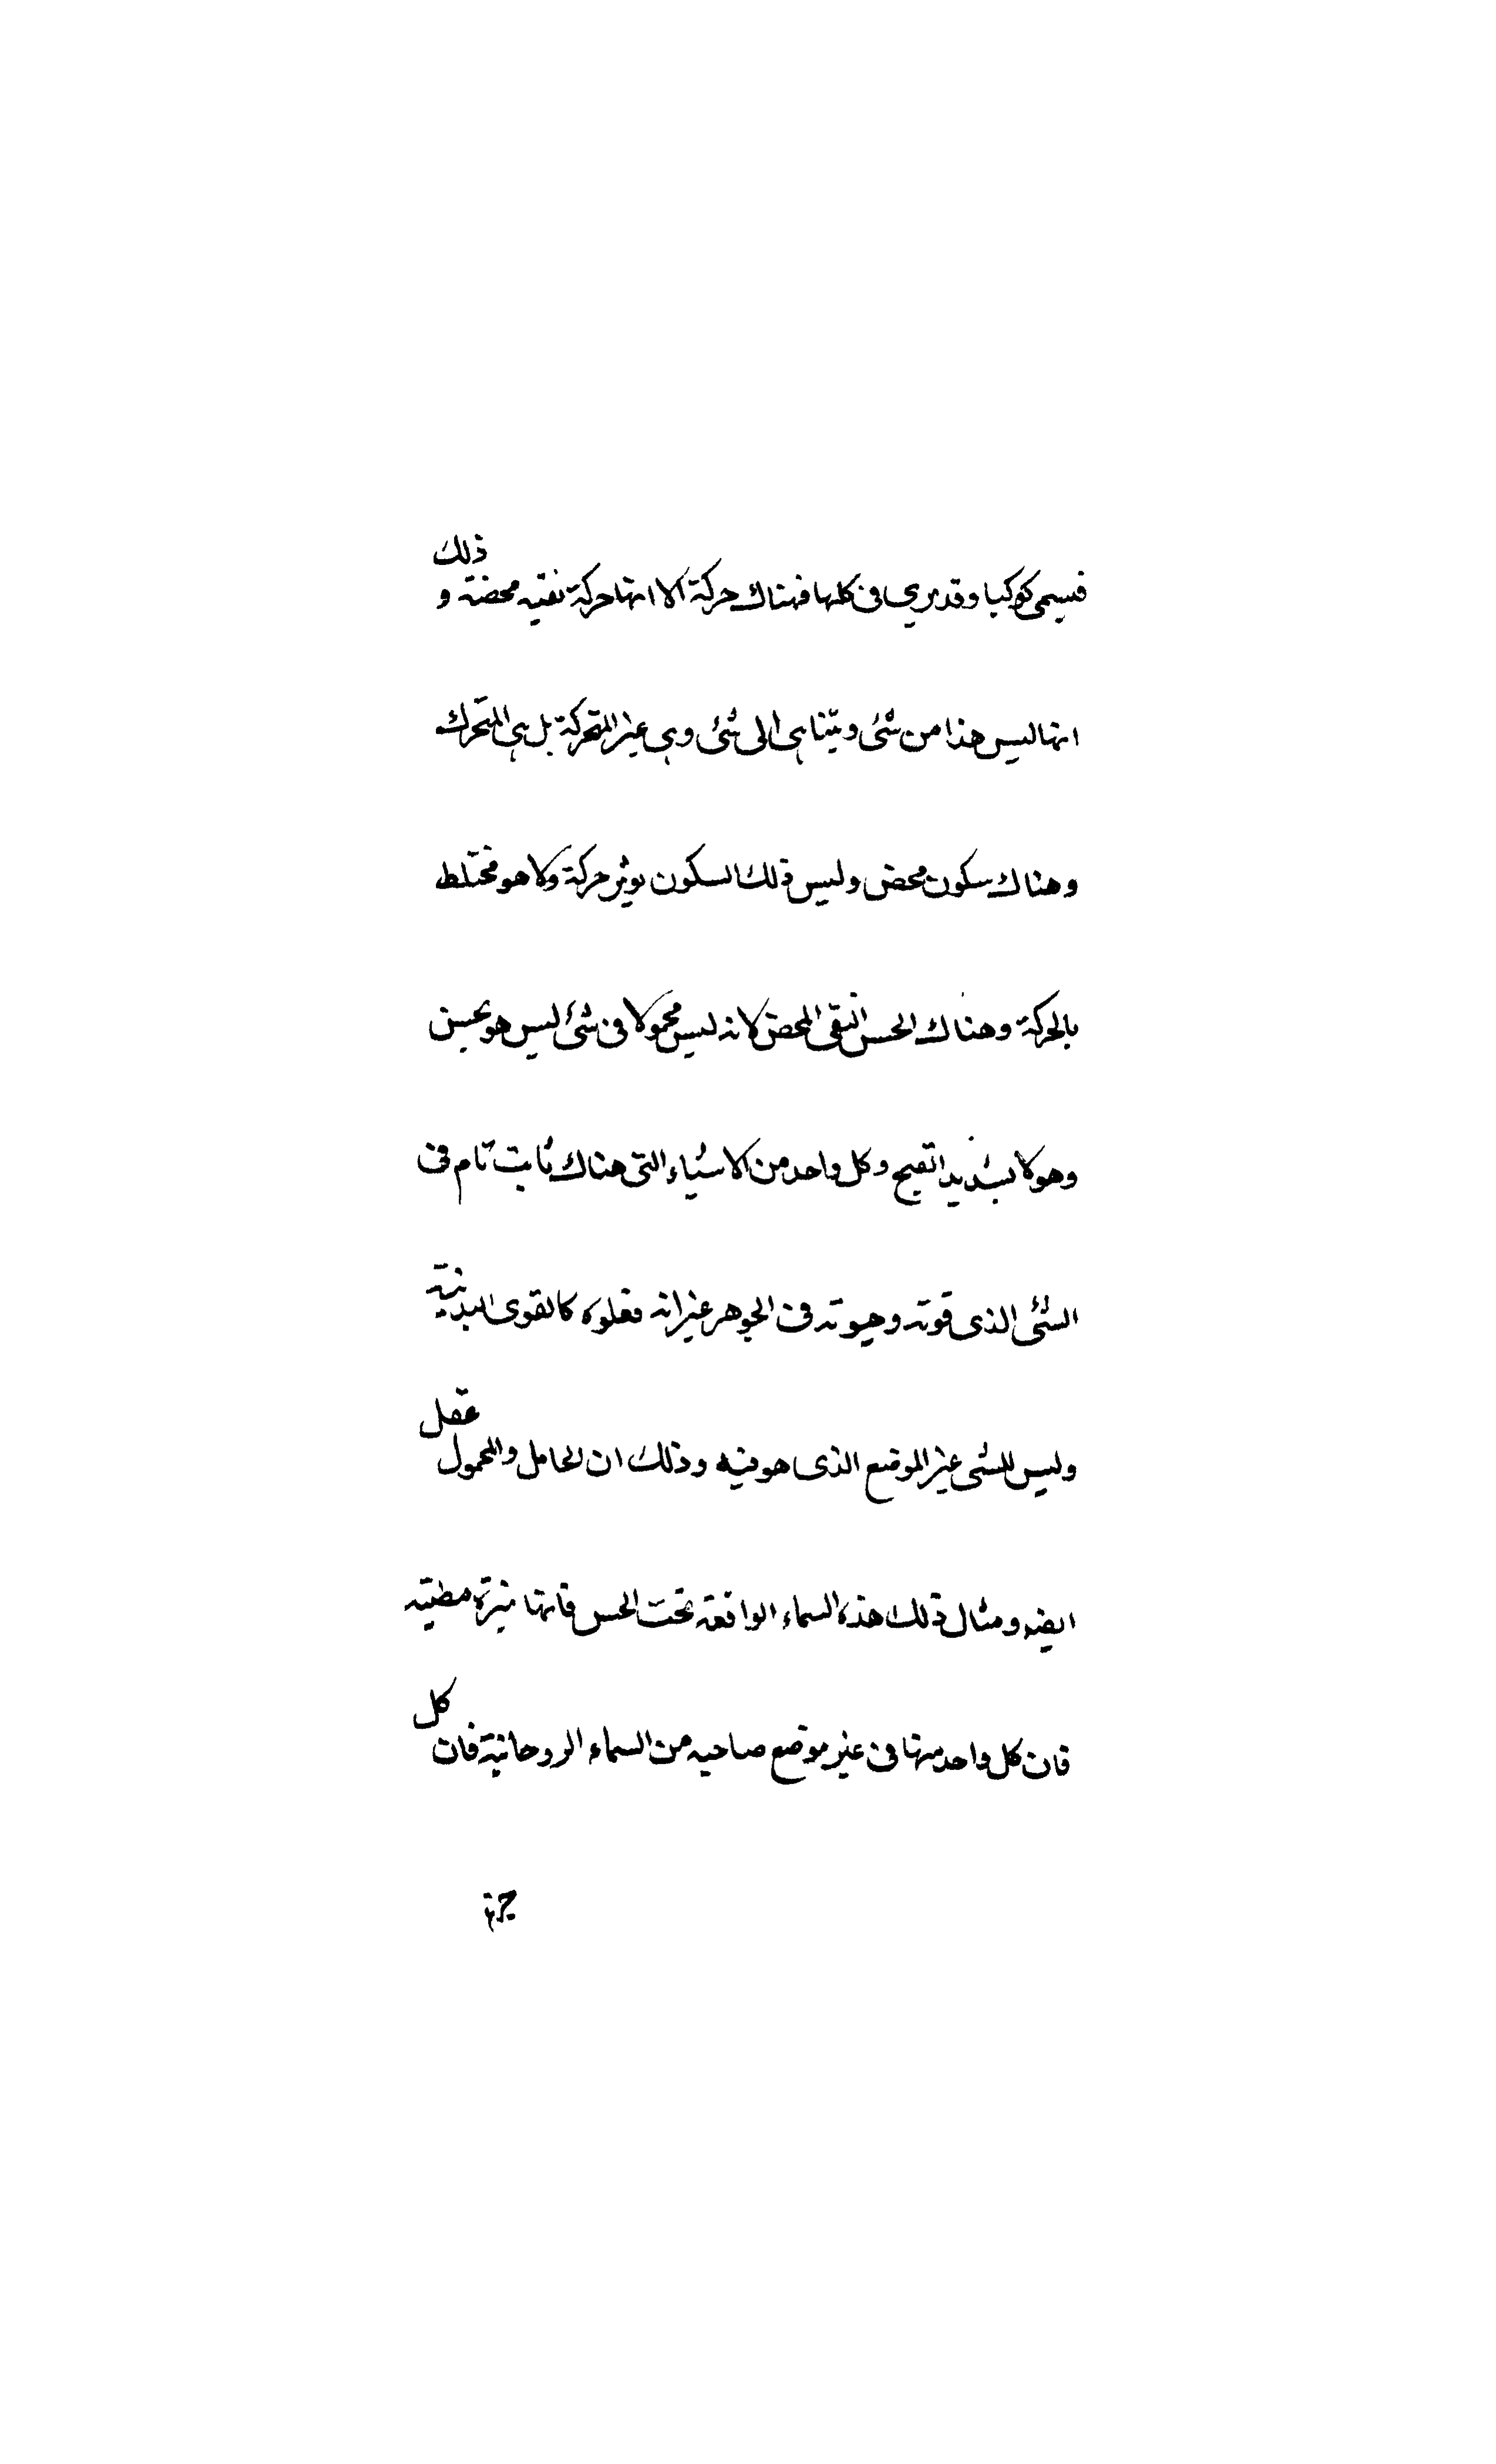 فيسمى كوكبا وقد يرى فى كلها فهناك حركة الا انها حركة نقيه محضة و ذلك
انها ليس هذا من شئ ويتناهى الى شئ وهى غير المتحركة بل هى المتحرك
وهناك سكون محض وليس ذلك السكون يوثر حركة ولا هو مختلط
بالحركة وهناك الحسن النقى المحض لانه ليس محمولا فى شئ ليس هو بحسن
وهو لا بشديد القبح وكل واحد من الاشياء التى هناك ثابت تام فى
الشئ الذى قوته وحيوته فى الجوهر غير انه فعلوه كالقوى البدنية
وليس للشى غير الموضع الذى هو فيه وذلك ان الحامل والمحمول عقل
ايضه ومثال ذلك هذه السماء الواقعة تحت الحس فانها نيرة مطيته
فان كل واحد منها فى غير موضع صاحبه من السماء الروحانية فان كل
جزء